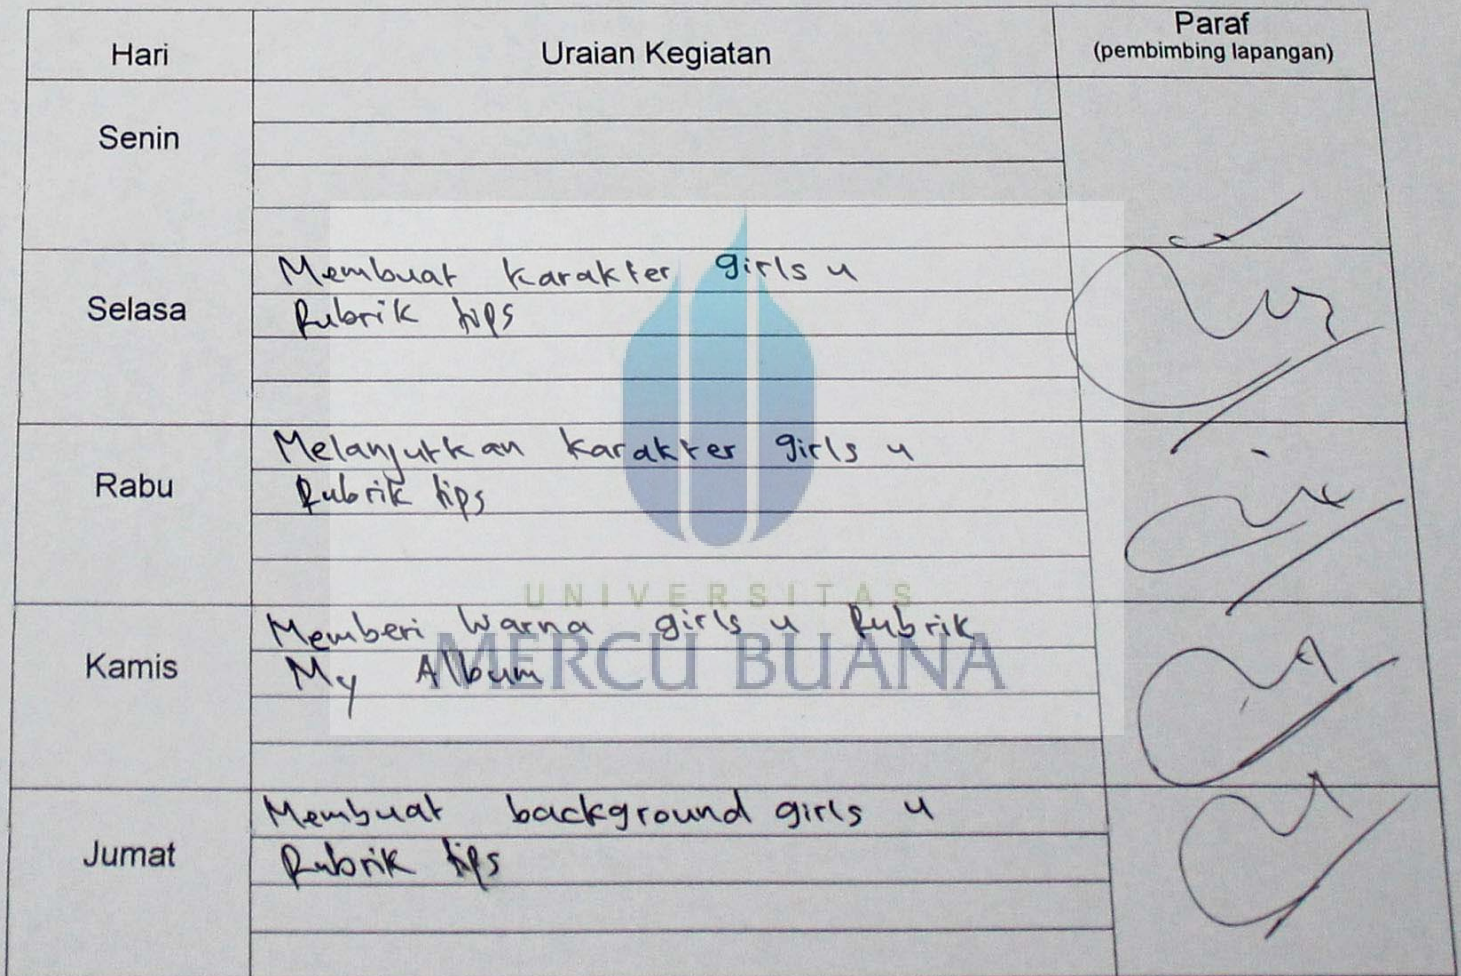 Hari Uraian Kegiatan Paraf
(pembimbing lapangan)
Senin
Selasa
Membuat karakter girls u
Rubrik tips
Rabu
Melanjutkan karakter girls u
Rubrik tips
UNIVERSITAS
MERCU BUANA
Kamis
Memberi warna girls u Rubrik
My Album
Jumat
Membuat background girls u
Rubrik tips